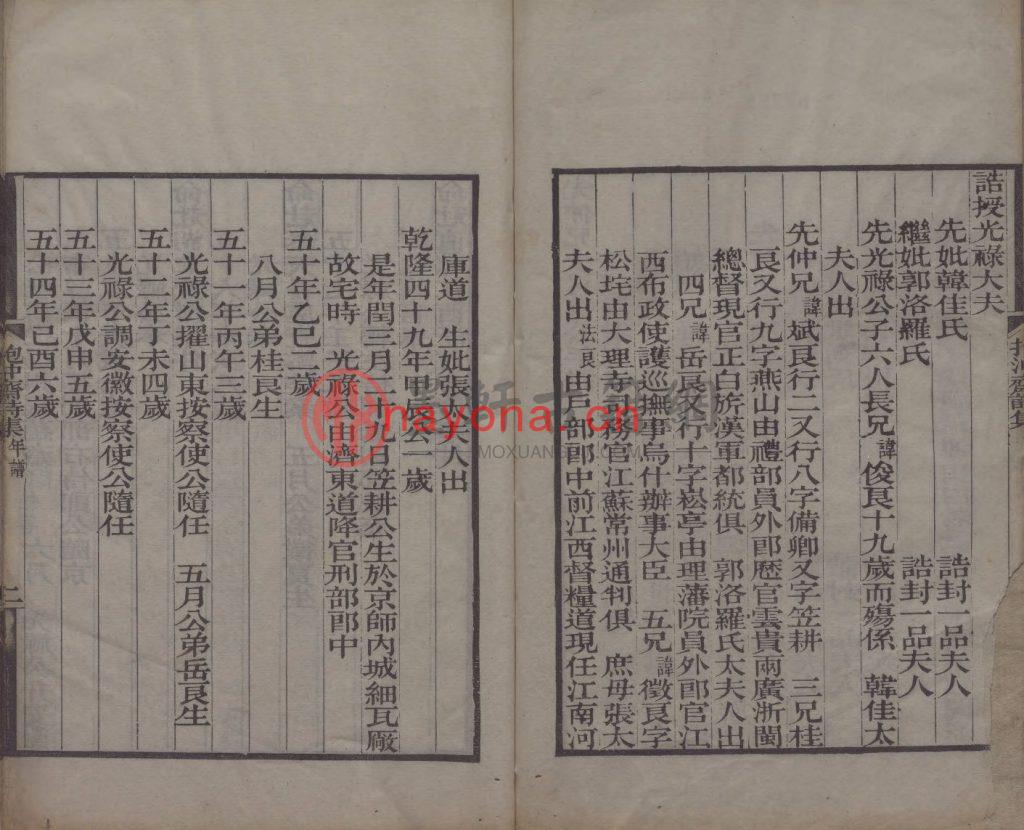 誥授光祿大夫
先妣韓佳氏 誥封一品夫人
繼妣郭洛羅氏 誥封一品夫人
先光祿公子六人長兄諱俊良十九歲而殤係 韓佳太
夫人出
先仲兄諱斌良行二又行八字備卿又字笠耕 三兄桂
良又行九字燕山由禮部員外郎歷官雲貴兩廣浙閩
總督現官正白旂漢軍都統俱 郭洛羅氏太夫人出
四兄諱岳良又行十字崧亭由理藩院員外郎官江
西布政使護巡撫事烏什辦事大臣 五兄諱徵良字
松坨由大理寺司務官江蘇常州通判俱 庶母張太
夫人出法良由戶部郎中前江西督糧道現任江南河
抱沖齋詩集
庫道 生妣張太夫人出
乾隆四十九年甲辰公一歲
是年閏三月十九日笠耕公生於京師內城細瓦廠
故宅時 光祿公由濟東道降官刑部郎中
五十年乙巳二歲
八月公弟桂良生
五十一年丙午三歲
光祿公擢山東按察使公隨任 五月公弟岳良生
五十二年丁未四歲
光祿公調安徽按察使公隨任
五十三年戊申五歲
五十四年己酉六歲
抱沖齋詩集年譜
二
nayona.cn